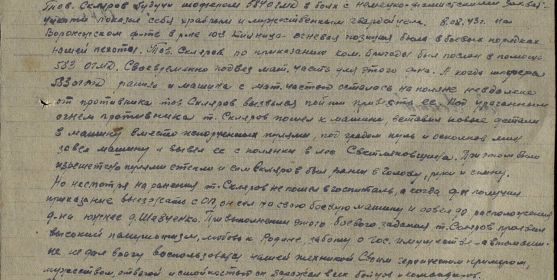 Тов. Скляров будучи шофером 584 ОГМД в боях с немецко-фашистскими захват-
чиками показал себя храбрым и мужественным гвардейцем. 8.08.43г. на
Воронежском фронте в р-не огневая позиция была в боевых порядках
нашей пехоты. Тов. Скляров по приказанию ком. бригады был послан в помощь
583 ОГМД. Своевременно подвез мат. часть для этого д-на. А когда шофера
583 ОГМД ранило и машина с мат. частью осталась на поляне невдалеке
от противника тов Скляров вызвался пойти привезти ее. Под ураганным
огнем противника т. Скляров пошел к машине, вставил новые детали
в машину, вместо испорченных пулями, под градом пуль и осколков мин
завел машину и вывел ее с полянки в лес. При этом было
изрешетено пулями стекло и сам Скляров был ранен в голову, руки и спину.
Но несмотря на ранения т. Скляров не пошел в госпиталь, а когда д-н получил
приказание выезжать с ОП, он сел за свою боевую машину и довел до расположения
д-на южнее д. Шевченко. При выполнении этого боевого задания т. Скляров проявил
высокий патриотизм, любовь к Родине, заботу о гос. имуществе - автомашине
не дал врагу воспользоваться нашей техникой. Своим героическим примером,
мужеством, отвагой и стойкостью он заражал всех бойцов и командиров.